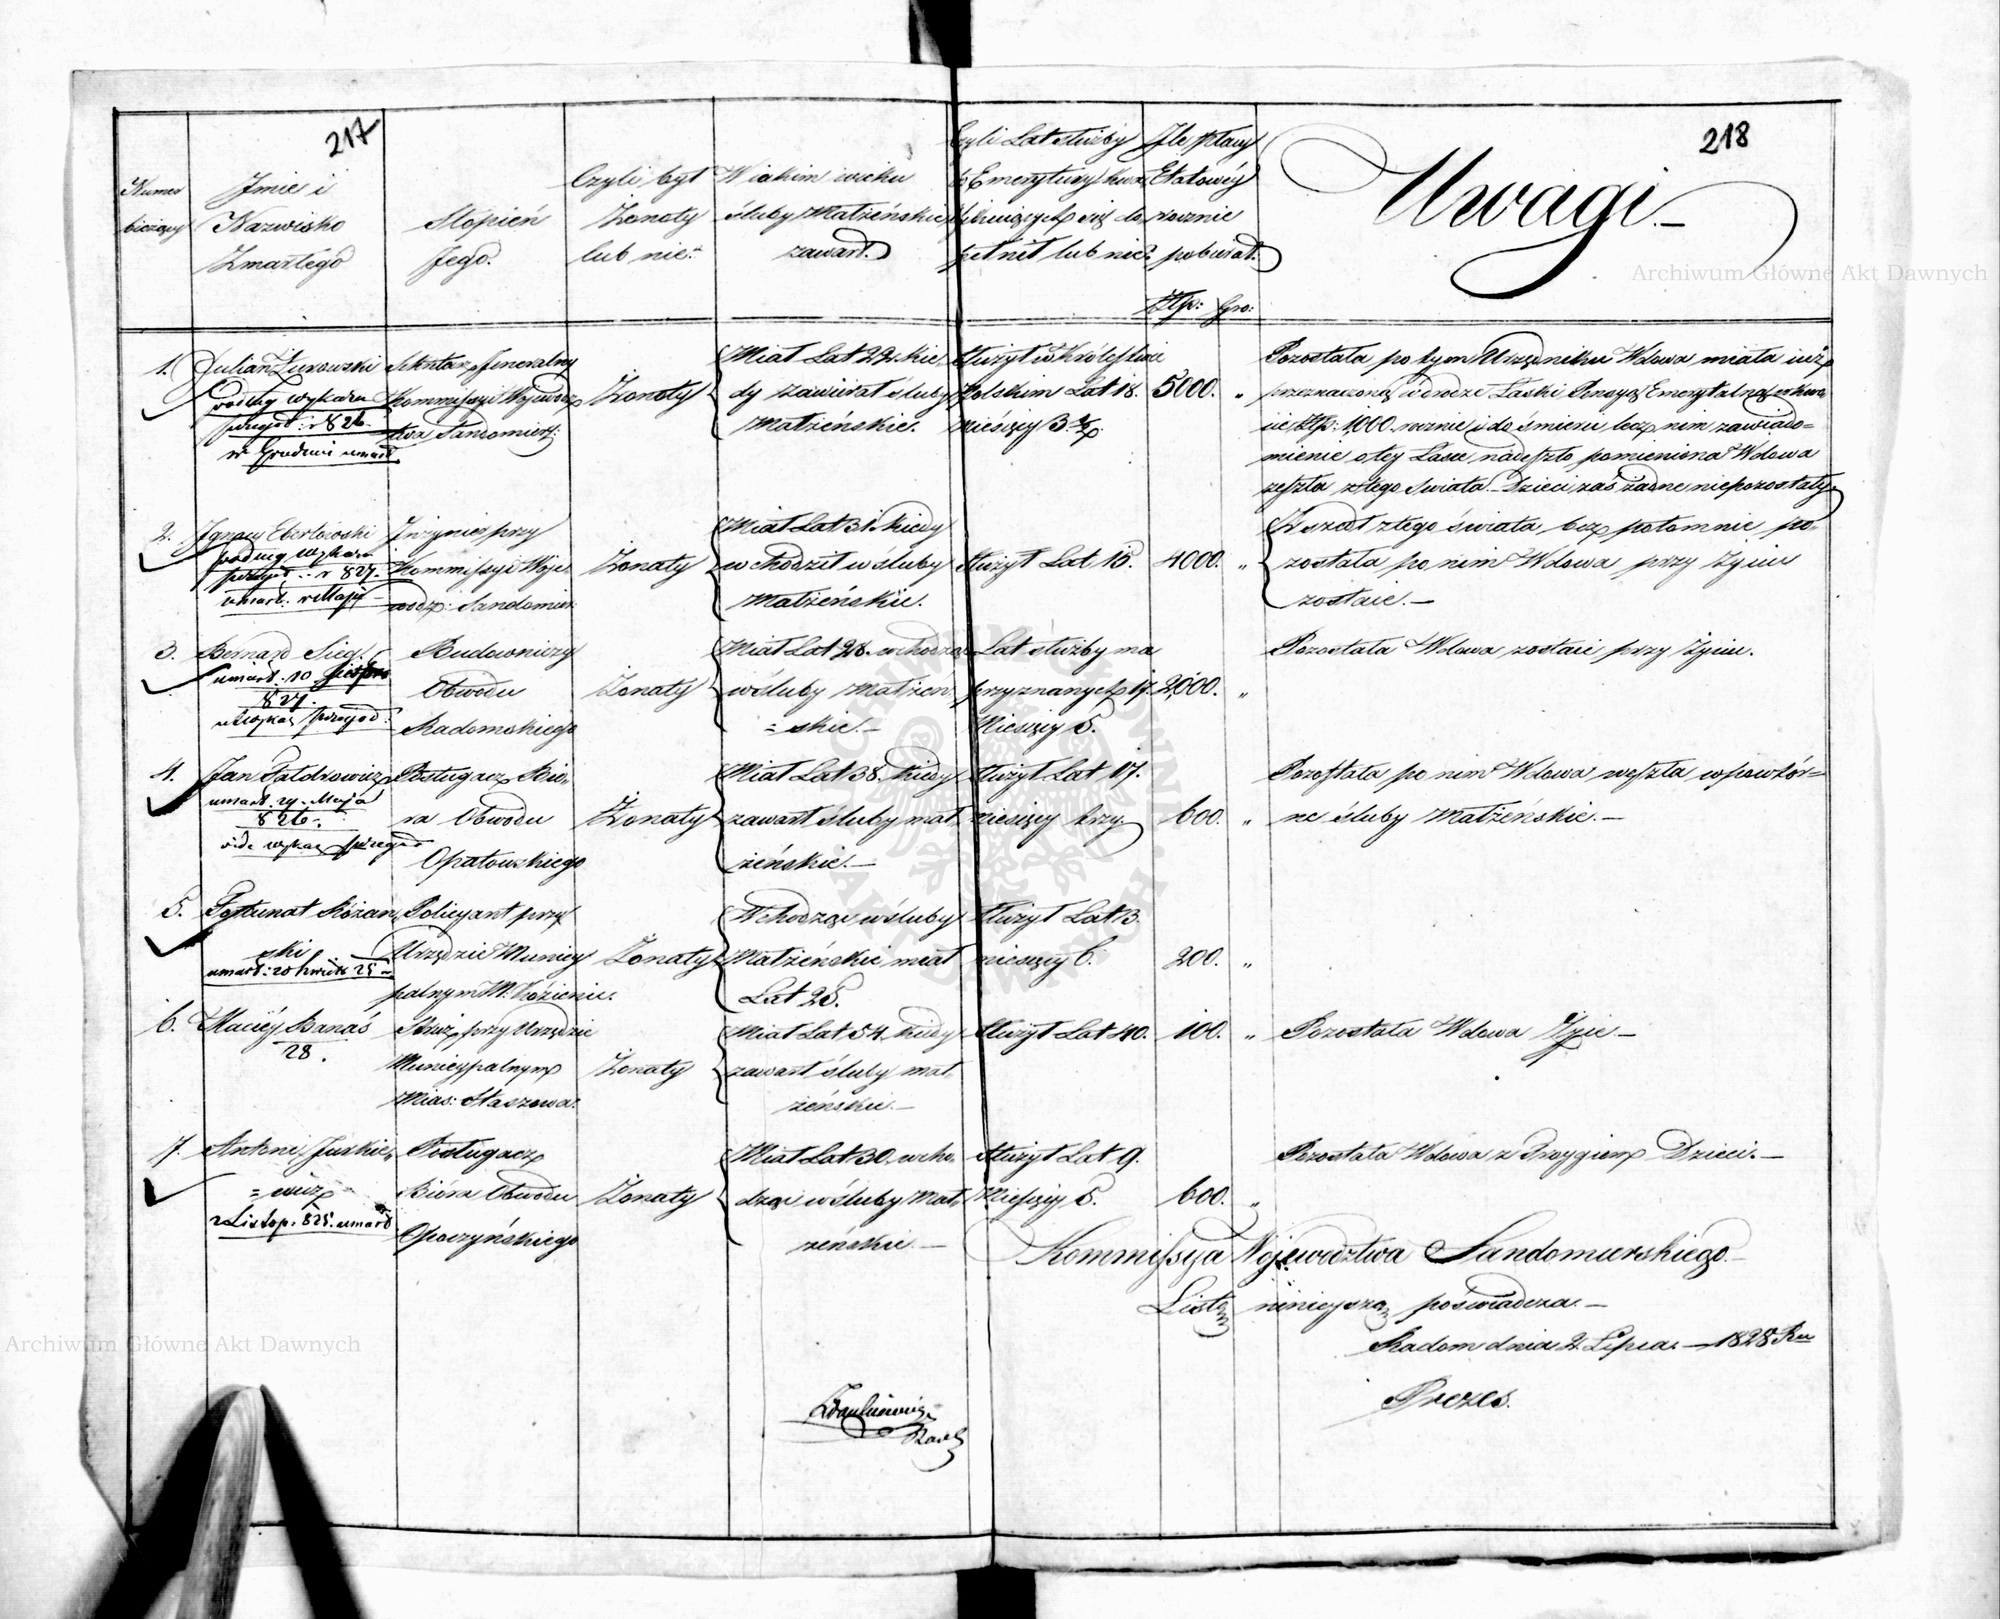 217
218
Numer
bieżący
Jmie i
Nazwisko
Zmarłego
Stopień
Jego.
Czyli był
Żonaty
lub nie.
W iakim wieku
śluby Małżeńskie
zawarł.
Czyli Lat służby
do Emerytury
się do
pełnił lub nie.
Jle płacy
Etatowéy
rocznie
pobierał.
Złp: Gro:
Uwagi.–
1.
Julian Żurowski
według wykazu
przeszł: r 826.
w Grudniu umarł
Sekretarz Jeneralny
Kommissyi Wojewódz
twa Sandomier:
Żonaty
Miał Lat 22. kie,
dy zawierał śluby
Małżeńskie.
Służył w Królestwie
Polskim Lat 18.
miesięcy 3
5000. „
Pozostała po tym Urzędniku Wdowa miała iuż
przeznaczoną w drodze Łaski Pensyą Emerytalną w kwo
cie Złp: 1,000. rocznie i do śmierci lecz nim zawiado=
mienie o tey Łasce nadeszło pomieniona Wdowa
zeszła z tego Świata. Dzieci zaś żadne niepozostały.
2.
Ignacy Eberlowski
podług wykazu
przeszł: r 827.
umarł: w Maju
Jnżynier przy
Kommissyi Woje
wodz: Sandomier:
Żonaty
Miał Lat 31. kiedy
wchodził w śluby
Małżeńskie.
Służył Lat 15.
4000. „
Zszedł z tego świata bez potomnie po=
została po nim Wdowa przy Życiu
zostaie.–
3.
Bernard Siegl
umarł: 10
827.
Budowniczy
Obwodu
Radomskiego
Żonaty
Miał Lat 28. wchodząc
w śluby Małżeń
= skie.–
Lat służby ma
przyznanych 17.
Miesięcy 5.
2,000. „
Pozostała Wdowa zostaie przy Życiu.
4.
Jan Fałdrowicz
umarł 29. Maja
826.
vide wykaz przeszł
Posługacz Biu,
ra Obwodu
Opatowskiego
Żonaty
Miał Lat 38. kiedy
zawarł śluby mał,
żeńskie.–
Służył Lat 17.
miesięcy trzy
600. „
Pozostała po nim Wdowa weszła w powtór=
ne śluby Małżeńskie.–
5.
Fortunat Różan,
ski
umarł: 20 kwiet: 25 –
Policyant przy
Urzędzie Municy
palnym M. Kozienic.
Żonaty
Wchodząc w śluby
Małżeńskie miał
Lat 25.
Służył Lat 3.
miesięcy 6.
200. „
6.
Maciéy Banaś
28.
Stróż przy Urzędzie
Municypalnym
Mias: Staszowa.
Żonaty
Miał Lat 54. kiedy
zawarł śluby mał,
żeńskie.–
Służył Lat 40.
100. „
Pozostała Wdowa Żyie –
7.
Antoni Jurkie,
= wicz
2 Listop: 825. umarł
Posługacz
Biura Obwodu
Opoczyńskiego
Żonaty
Miał Lat 30. wcho
dząc w śluby Mał,
żeńskie.–
Służył Lat 9.
Miesięcy 5.
600. „
Pozostała Wdowa z Dzieci.–
Kommissya Województwa Sandomierskiego.–
Listę niniejszą poświadcza.–
Radom dnia 2. Lipca.– 1828 Ru
Prezes.
Archiwum Główne Akt Dawnych
Archiwum Główne Akt Dawnych
ARCHIWUM GŁÓWNE AKT DAWNYCH